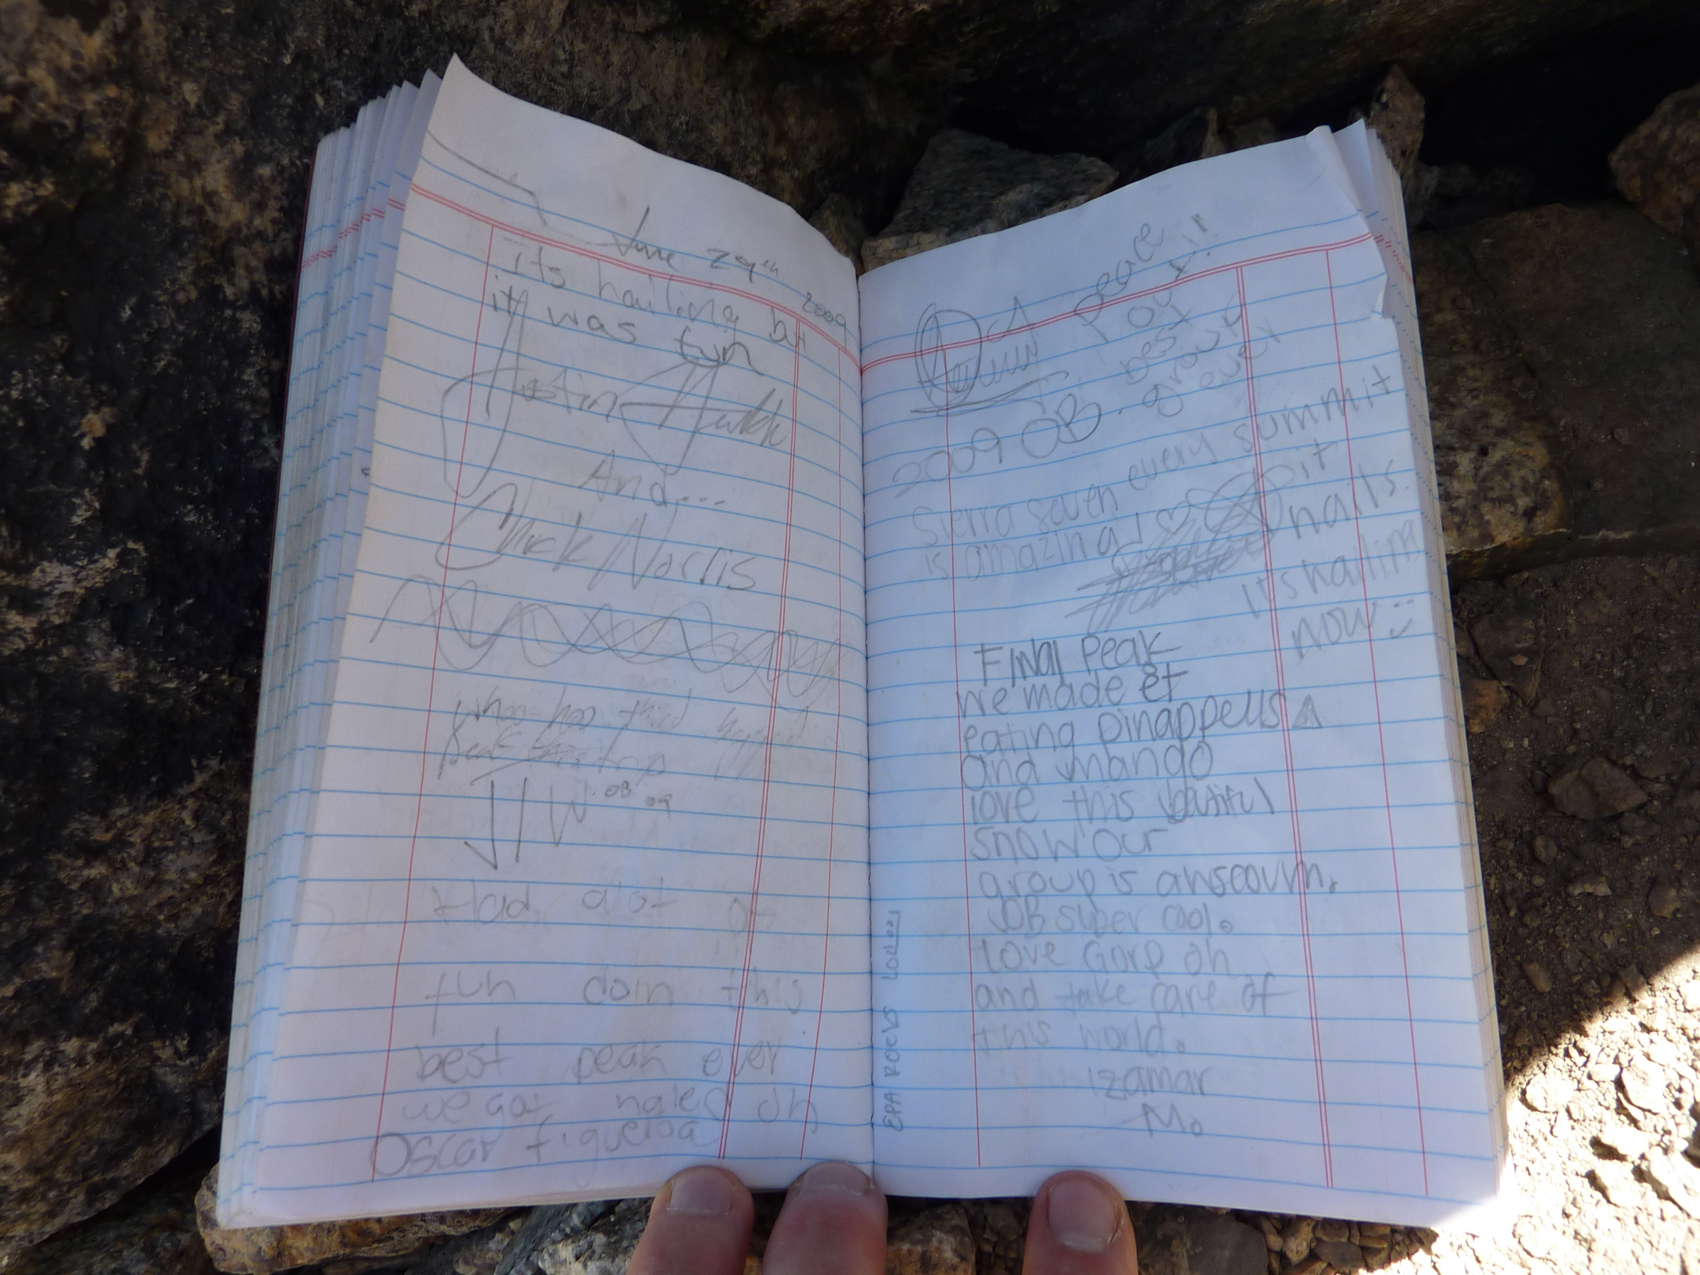 June 29th 2009
its hailing but
it was fun
Austin
And...
Chuck Norris
Whoo hoo third
peak
JHW 08 09
Had alot of
fun doin this
best peak ever
we got haled on
Oscar figueroa
peace
Joy
best
group
ever
2009 OB
Sierra seven every summit
is amazing! it
hails.
It's hailing
now
Final Peak
we made et
eating pinappells
and mango
love this
snow our
group is awscoum.
OB super cool.
love Gorp oh
and take care of
this world.
Izamar
M.
EPA ROCKS